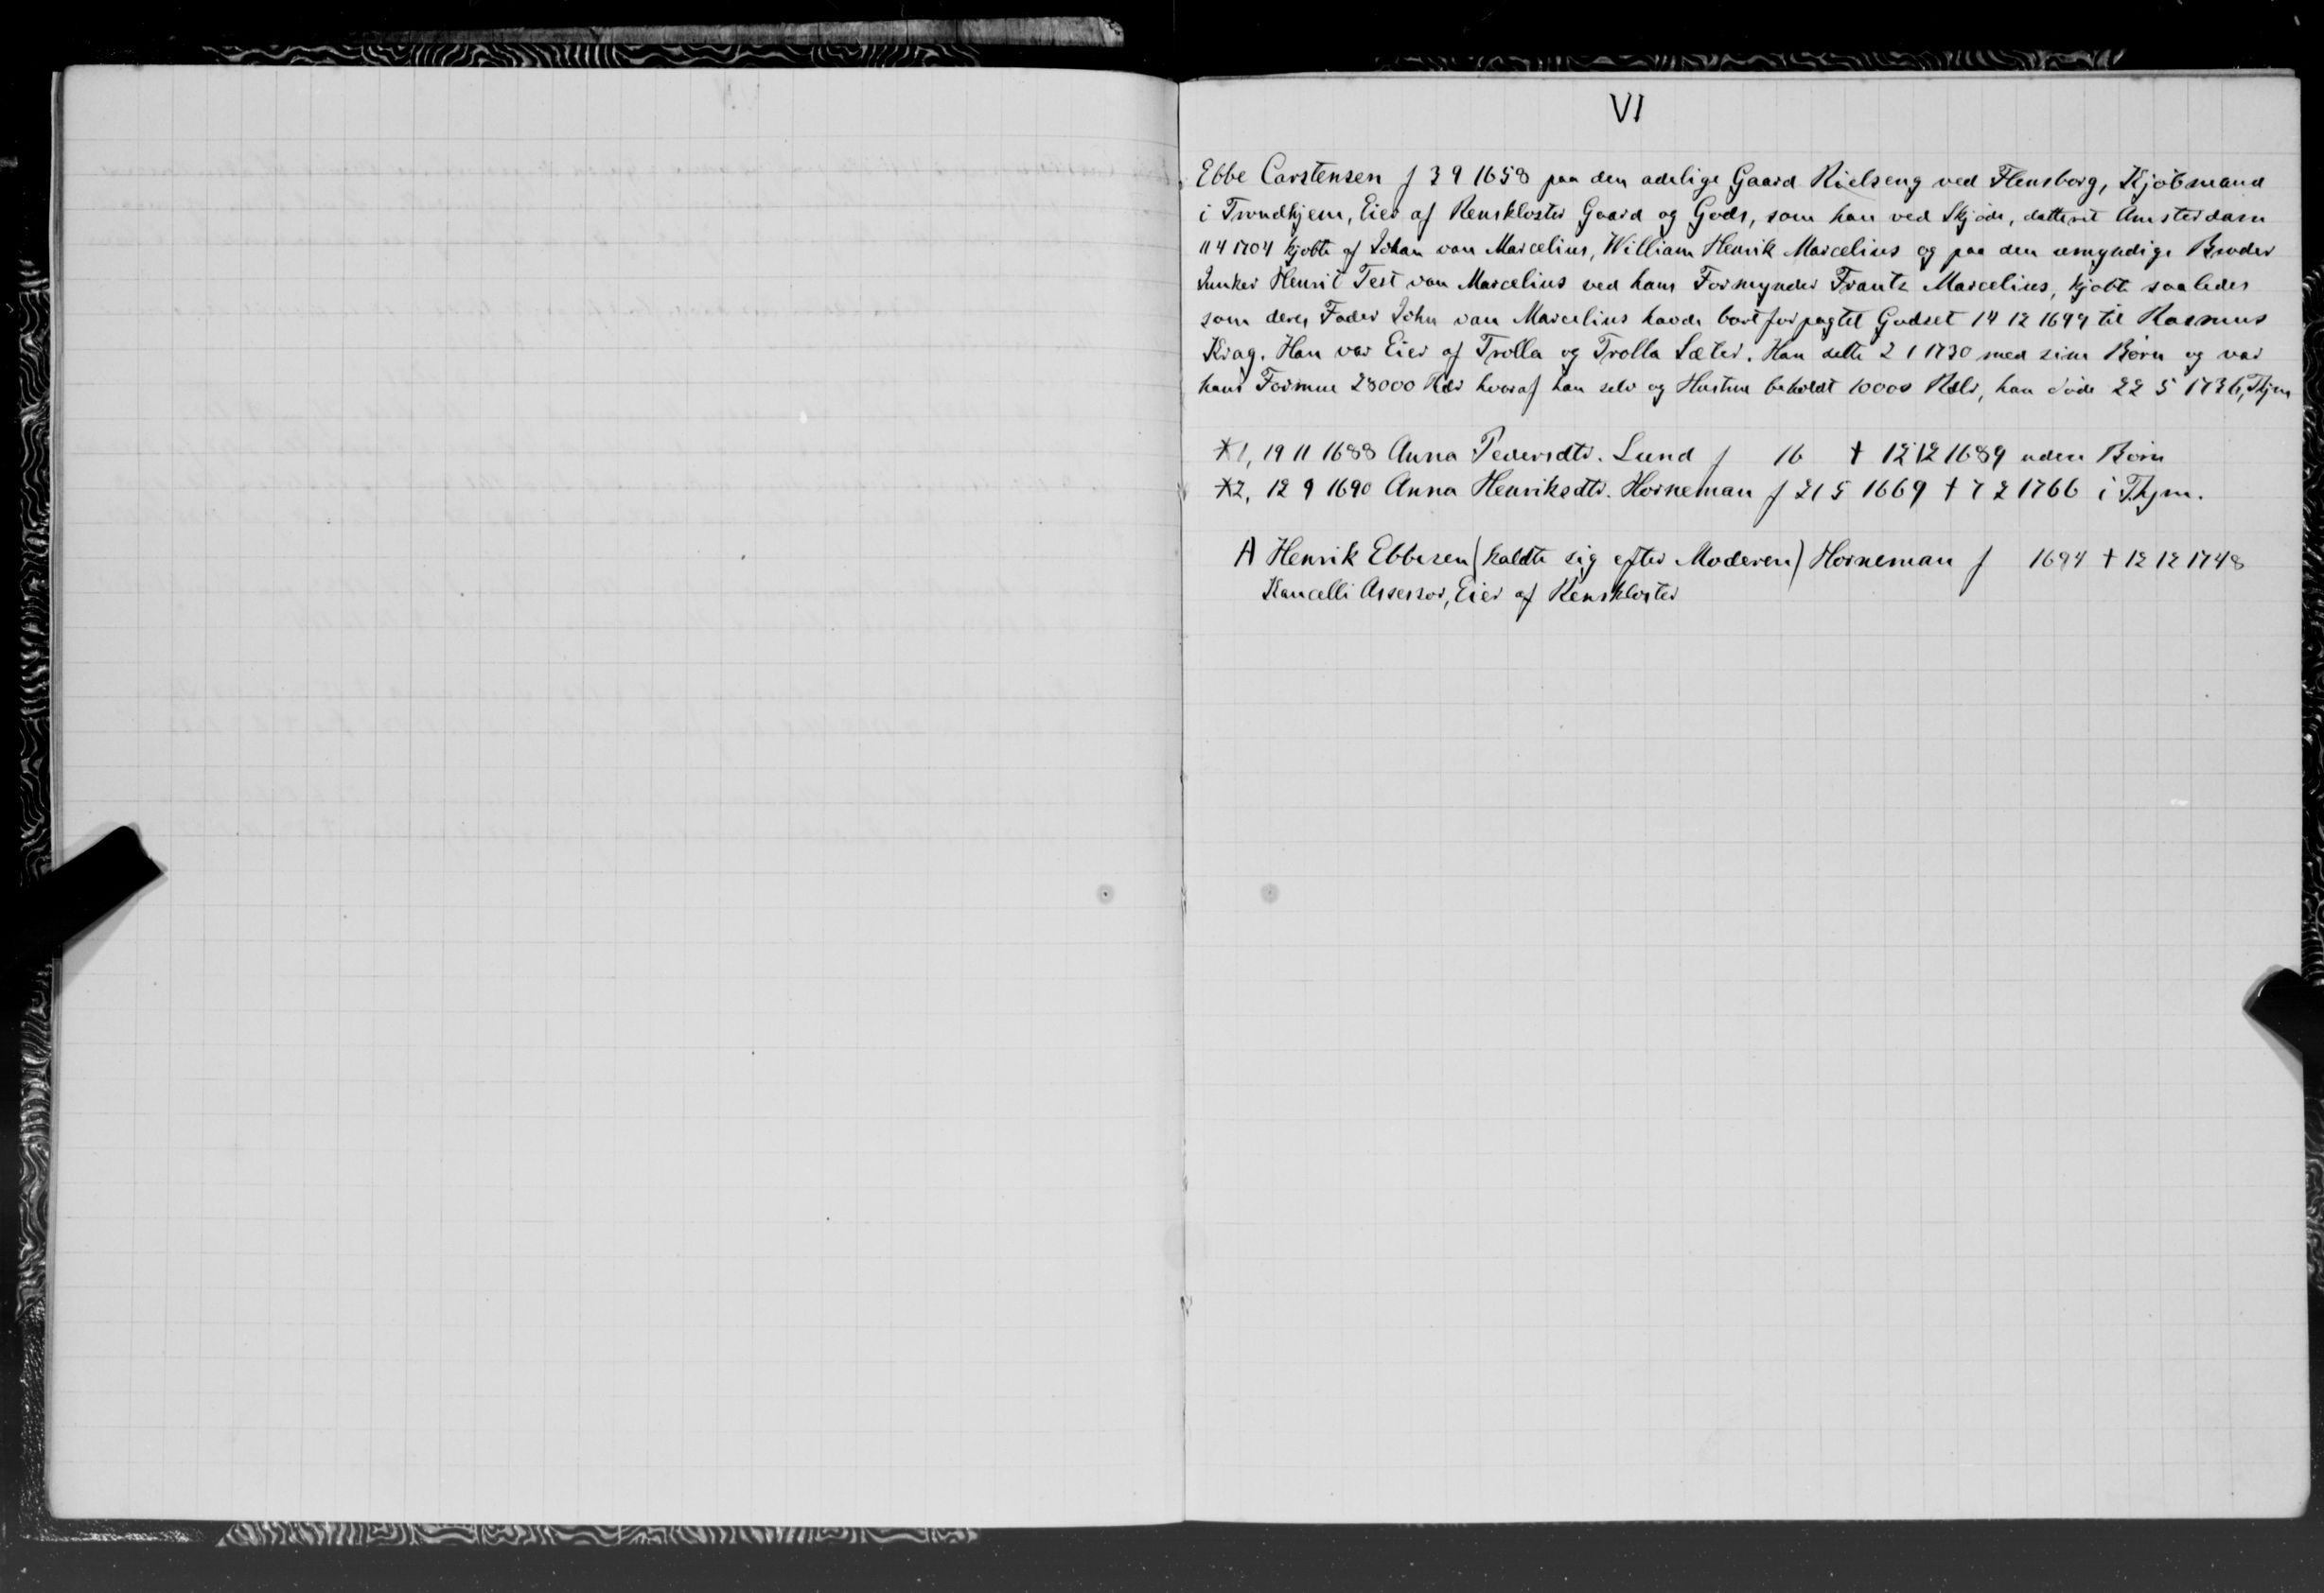 VI
Ebbe Carstensen f 3 9 1658 paa den adelige Gaard Rielseng ved Flensborg, Kjøbmand
i Trondhjem, Eier af Renskloster Gaard og Gods, som han ved Skjøde, datteret Amsterdam
11 4 1704 kjøbte af Johan van Marcelius, William Henrik Marcelius og paa den umyndige Broder
Junker Henrik Test van Marcelius ved hans Formynder Frantz Marcelius, kjøbte saaledes
som deres Fader John van Marcelius havde bortforpagtet Godset 14 12 1699 til Rasmus
Krag. Han var Eier af Trolla og Trolla Sæter. Han delte 2 1 1730 med sine Børn og var
hans Formue 28000 Rdlr hvoraf han selv og Hustru beholdt 10000 Rdlr, han døde 22 5 1736, Thjem
*1, 19 11 1688 Anna Pedersdtr. Lund f 16 † 12 12 1689 uden Børn
*2, 12 9 1690 Anna Henriksdtr. Horneman f 21 5 1669 † 7 2 1766 i Thjm.
A Henrik Ebbesen (kaldte sig efter Moderen) Horneman f 1694 † 12 12 1748
Kancelli Assessor, Eier af Renskloster